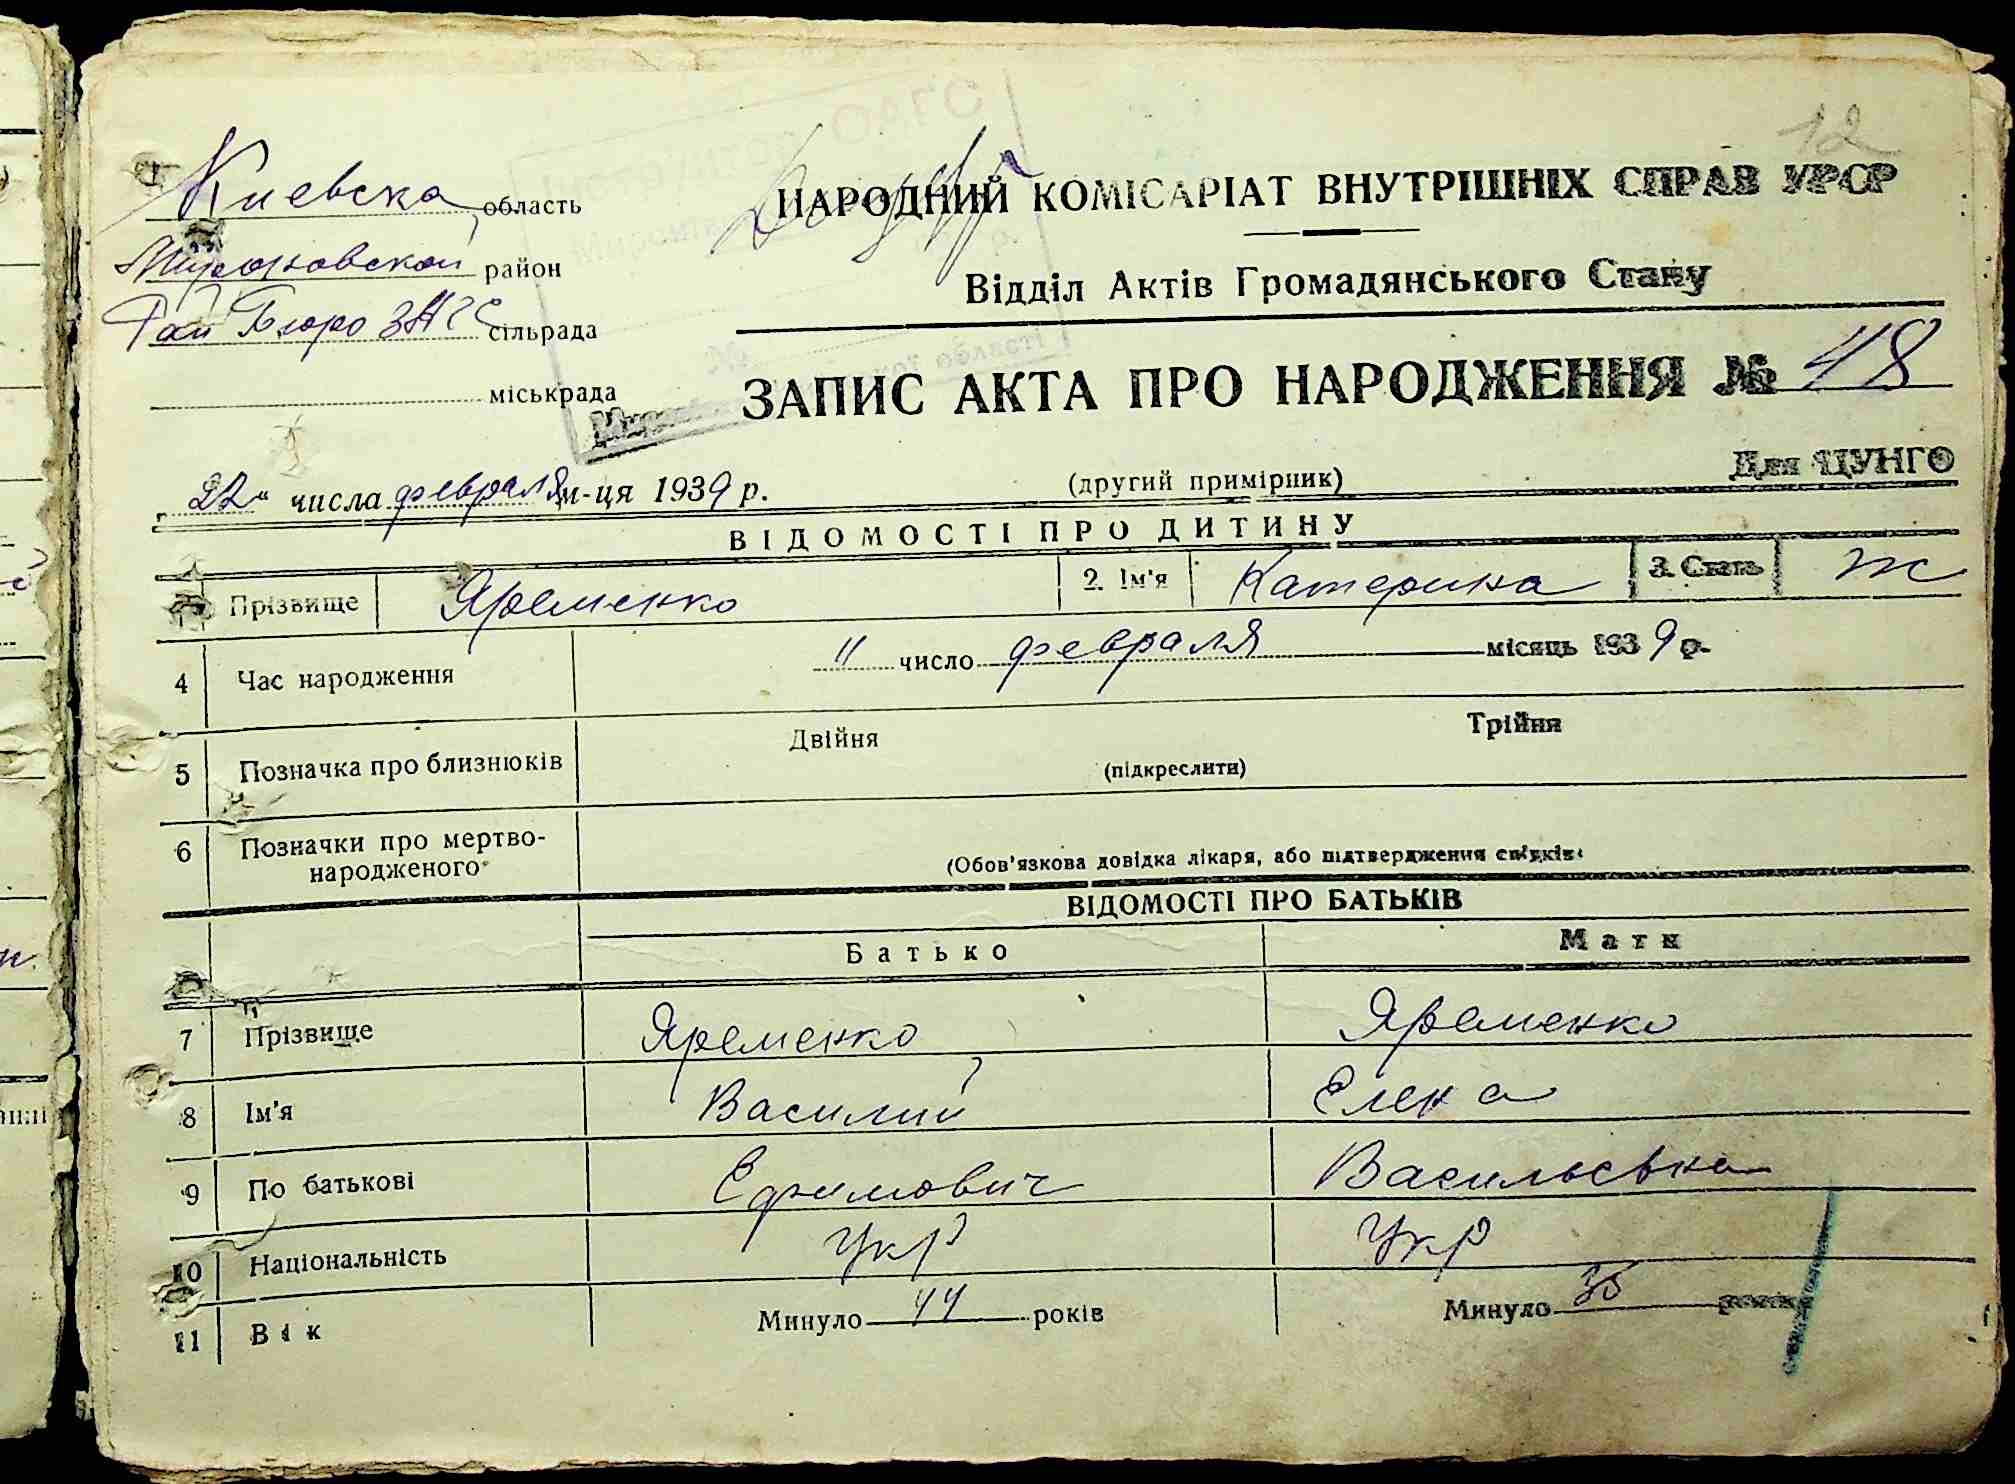 12
Киевска область
Мироновской район
Рай Бюро ЗАГС сільрада
міськрада
НАРОДНИЙ КОМІСАРІАТ ВНУТРІШНІХ СПРАВ УРСР
Відділ Актів Громадянського Стану
ЗАПИС АКТА ПРО НАРОДЖЕННЯ № 48
„22“ числа февраля м-ця 1939 р.
(другий примірник)
Для ЦУНГО
ВІДОМОСТІ ПРО ДИТИНУ
Прізвище Яременко 2. Ім'я Катерина 3. Стать ж
4 Час народження 11 число февраля місяць 1939 р.
5 Позначка про близнюків Двійня Трійня
(підкреслити)
6 Позначки про мертво-
народженого
(Обов'язкова довідка лікаря, або підтвердження свідків)
ВІДОМОСТІ ПРО БАТЬКІВ
Батько Мати
7 Прізвище Яременко Яременко
8 Ім'я Василий Елена
9 По батькові Ефимович Васильевна
10 Національність Укр Укр
11 Вік Минуло 44 років Минуло 35 років